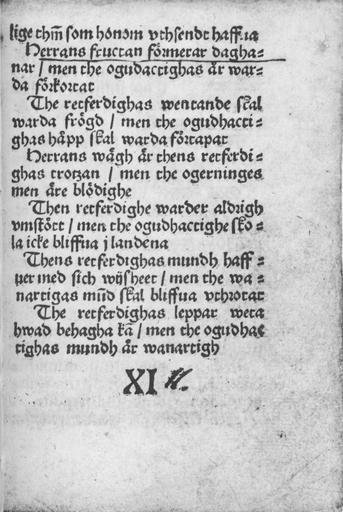 lige thm̄ som honom vthsendt haffua
Herrans fructan förmerar dagha=
nar / men the ogudactighas är war=
da förkortat
The retferdighas wentande skal
warda frögd / men the ogudhacti=
ghas häpp skal warda förtapat
Herrans wägh är thens retferdi=
ghas trotzan / men the ogerninges
men äre blödighe
Then retferdighe warder aldrigh
vmstött / men the ogudhactighe sko=
la icke bliffua j landena
Thens retferdighas mundh haff=
uer med sich wijsheet / men the wa=
nartigas mūd skal bliffua vthrotat
The retferdighas leppar weta
hwad behagha kā / men the ogudhac
tighas mundh är wanartigh
XI